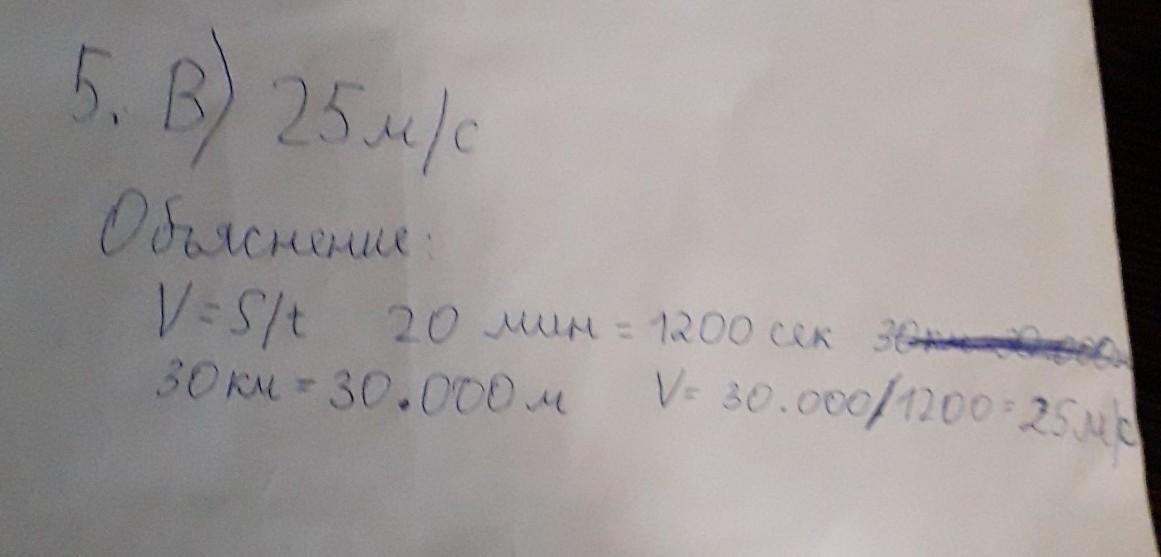 5. В) 25 м/с
Объяснение:
V = S/t 20 мин = 1200 сек 30км 30.000м
30 км = 30.000 м V = 30.000/1200 = 25 м/с